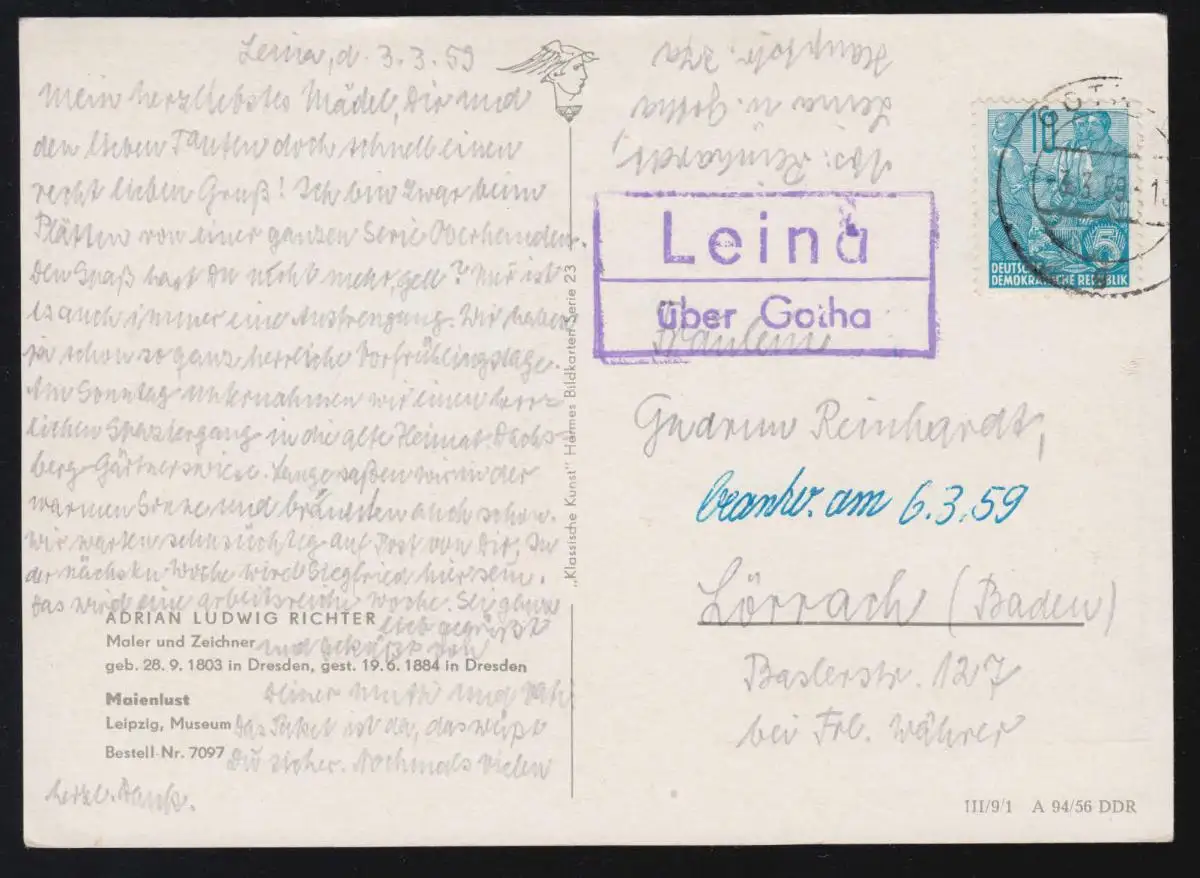 Leina, d. 3.3.59
Mein herzliebstes Mädel, Dir und
den lieben Tanten doch schnell einen
recht lieben Gruß! Ich bin zwar beim
Plätten von einer ganzen Serie Oberhemden.
Den Spaß hast Du nicht mehr, gell? Mir ist
es auch immer eine Anstrengung. Wir haben
ja schon so ganz herrliche Vorfrühlingstage.
Am Sonntag unternahmen wir einen herr-
lichen Spaziergang in die alte Heimat Dachs-
berg-Gärtnerswiese. Lange saßen wir in der
warmen Sonne und bräunten auch schon.
Wir warten sehnsüchtig auf Post von Dir, In
der nächsten Woche wird Siegfried hier sein.
Das wird eine arbeitsreiche Woche. Sei
lieb gegrüßt
und geküßt von
Deiner Mutti und
Das Paket ist da, das weißt
Du sicher. Nochmals vielen
herzl. Dank.
ADRIAN LUDWIG RICHTER
Maler und Zeichner
geb. 28. 9. 1803 in Dresden, gest. 19. 6. 1884 in Dresden
Maienlust
Leipzig, Museum
Bestell-Nr. 7097
„Klassische Kunst" Hermes Bildkarten Serie 23
Abs.: Reinhardt,
Leina ü. Gotha
Hauptstr. 27a
Leina
über Gotha
10
5
DEUTSCHE
DEMOKRATISCHE REPUBLIK
GOTH
-3.3.59-13
Fräulein
Gudrun Reinhardt,
beantw. am 6.3.59
Lörrach (Baden)
Baslerstr. 127
bei Frl. Währer
III/9/1 A 94/56 DDR